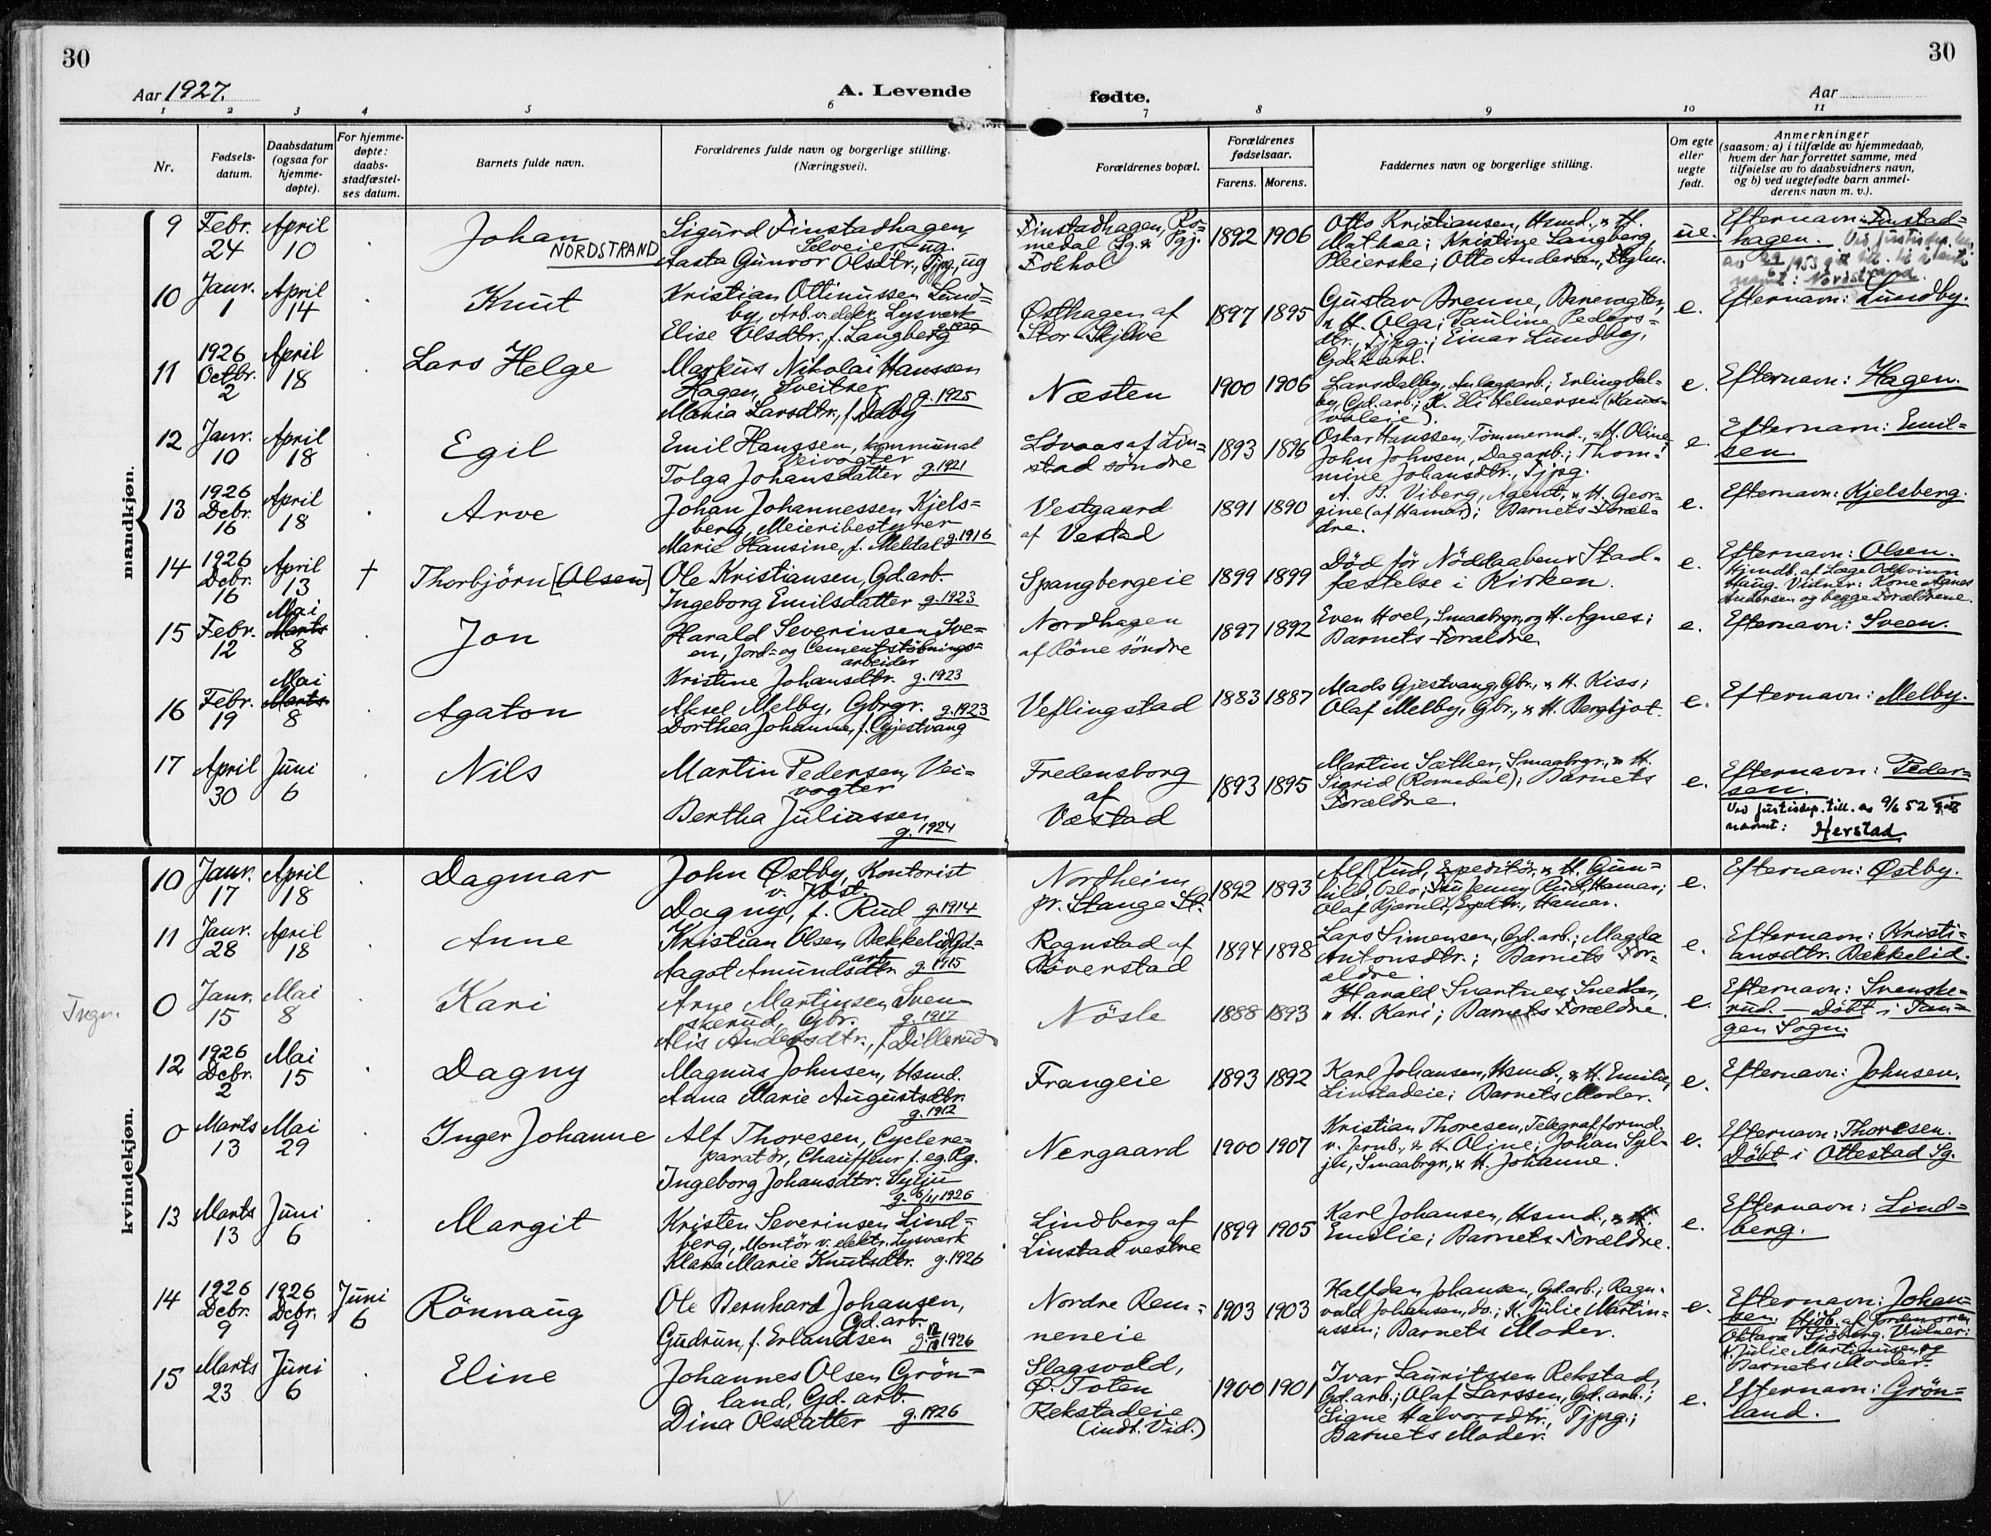 30
30
Aar 1927.
A. Levende
fødte.
Aar
1 2 3 4 5 6 7 8 9 10 11
Nr.
Fødsels-
datum.
Daabsdatum
(ogsaa for
hjemme-
døpte).
For hjemme-
døpte:
daabs-
stadfæstel-
ses datum.
Barnets fulde navn.
Forældrenes fulde navn og borgerlige stilling.
(Næringsvei).
Forældrenes bopæl.
Forældrenes
fødselsaar.
Farens. Morens.
Faddernes navn og borgerlige stilling.
Om egte
eller
uegte
født.
Anmerkninger
(saasom: a) i tilfælde av hjemmedaab,
hvem der har forrettet samme, med
tilføielse av to daabsvidners navn,
og b) ved uegtefødte barn anmel-
derens navn m. v.).
mandkjøn.
9
Febr.
24
April
10
Johan
NORDSTRAND
Sigurd Finstadhagen,
Selveier ug.
Aasta Gunvor Olsdtr., Tjpg., ug
Finstadhagen, Ro-
medal Sg. & Pgj.
Fokhol
1892 1906
Otto Kristiansen, Hsmd., & H.
Mathea; Kristine Langberg,
Pleierske; Otto Andersen,
ue.
Efternavn: Finstad-
hagen.
Nordstrand
10
Janr.
1
April
14
Knut
Kristian Ottinussen Lund-
by, Arb. v. elektr. Lysværk
Elise Olsdtr., f. Langberg
Østhagen af
Stor-Skjelve
1897 1895
Gustav Brenne, Banevogter,
& H. Olga; Pauline Peders-
dtr., Tjpg.; Einar Lundby,
Gd. Karl.
e.
Efternavn: Lundby.
11
1926
Octbr.
2
April
18
Lars Helge
Markus Nikolai Hanssen
Hagen, Sveitser
g. 1925
Maria Larsdtr., f. Dalby
Næsten
1900 1906
Lars Dalby, Anlægsarb.; Erling Dal-
by, Gd. arb.; K. Eli Helmersen
e.
Efternavn: Hagen.
12
Janr.
10
April
18
Egil
Emil Hanssen, kommunal
Veivogter
Tolga Johansdatter g. 1921
Løvaas af Lin-
stad søndre
1893 1896
Oskar Hanssen, Tømmermd., & H. Oline;
John Johnsen, Dagarb.; Thom-
mine Johansdtr., Tjpg.
e.
Efternavn: Emil-
sen.
13
1926
Debr.
16
April
18
Arve
Johan Johannessen Kjels-
berg, Meieribestyrer
Marie Hansine, f. Meldal g. 1916
Vestgaard
af Vestad
1891 1890
A. T. Viberg, Agent, & H. Geor-
gine (af Hamar); Barnets Foræl-
dre.
e.
Efternavn: Kjelsberg.
14
1926
Debr.
16
April
13
†
Thorbjörn [Olsen]
Ole Kristiansen, Gd. arb.
Ingeborg Emilsdatter g. 1923
Spangbergeie
1899 1899
Död för Nöddaabens Stad-
fæstelse i Kirken.
e.
Efternavn: Olsen.
Hjmdb. af Læge Oddvinn
Haug. Vidner: Kone Agnes
Andersen og begge Forældrene.
15
Febr.
12
Mai
Marts
8
Jon
Harald Severinsen Sve-
en, Jord- og Cementstøbnings-
arbeider
Kristine Johansdtr. g. 1923
Nordhagen
af Röne söndre
1897 1892
Even Hoel, Smaabrgr., og H. Agnes;
Barnets Forældre.
e.
Efternavn: Sveen.
16
Febr.
19
Mai
Marts
8
Agaton
Aksel Melby, Gbrgr. g. 1923
Dorthea Johanne, f. Gjestvang
Veflingstad
1883 1887
Mads Gjestvang, Gbr., & H. Kiss;
Olaf Melby, Gbr., & H. Bergljot.
e.
Efternavn: Melby.
17
April
30
Juni
6
Nils
Martin Pedersen, Vei-
vogter
Bertha Juliussen
g. 1924
Fredensborg
af
Væstad
1893 1895
Martin Sæther, Smaabrgr., & H.
Sigrid (Romedal); Barnets
Forældre.
e.
Efternavn: Peder-
sen.
Ved Justisdep. till. av 9/6 52 gitt
navnet: Herstad
kvindekjøn.
10
Janr.
17
April
18
Dagmar
John Østby, Kontorist
v. Jbst.
Dagny, f. Rud g. 1914
Nordheim
pr. Stange St.
1892 1893
Alf Rud, Expeditör, & H. Gun-
hild, Oslo; Fru Jenny Rud, Hamar;
Olaf Bjernli, Expdtr., Hamar.
e.
Efternavn: Østby.
11
Janr.
28
April
18
Anne
Kristian Olsen Bækkelid, Gd-
arb.
Aagot Amundsdtr. g. 1915
Rognstad af
Röverstad
1894 1898
Lars Simensen, Gd. arb.; Magda
Antonsdtr.; Barnets For-
ældre.
e.
Efternavn: Kristi-
ansdtr. Bækkelid.
Tngn.
0
Janr.
15
Mai
8
Kari
Arne Martinsen Sven-
skerud, Gbr. g. 1917
Alis Andersdtr., f. Dillerud
Nösle
1888 1893
Harald Svartnes, Snedker,
& H. Kari; Barnets Forældre.
e.
Efternavn: Svenske-
rud. — Döbt i Tan-
gen Sogn.
12
1926
Debr.
2
Mai
15
Dagny
Magnus Johnsen, Hsmd.
Anna Marie Augustsdtr.
g. 1912
Frangeie
1893 1892
Karl Johansen, Hsmd., & H. Emilie,
Linstadeie; Barnets Moder.
e.
Efternavn: Johnsen.
0
Marts
13
Mai
29
Inger Johanne
Alf Thoresen, Cyclere-
paratör, Chauffeur f. eg. Rg.
Ingeborg Johansdtr. Sylju
g. 6/11 1926
Nergaard
1900 1907
Kristian Thoresen, Telegrafformd.
v. Jernb., & H. Oline; Johan Syl-
ju, Smaabrgr., & H. Johanne.
e.
Efternavn: Thoresen.
Döbt i Ottestad Sg.
13
Marts
13
Juni
6
Margit
Kristen Severinsen Lind-
berg, Montör v. elektr. Lysværk
Klara Marie Knutsdtr. g. 1926
Lindberg af
Linstad vestre
1899 1905
Karl Johansen, Hsmd., & H.
Emilie; Barnets Forældre.
e.
Efternavn: Lind-
berg.
14
1926
Debr.
9
1926
Debr.
9
Juni
6
Rönnaug
Ole Bernhard Johansen,
Gd. arb.
Gudrun, f. Erlandsen g. 1926
Nordre Rem-
meneie
1903 1903
Halfdan Johansen, Gd. arb.; Ragn-
vald Johansen, do.; K. Julie Martin-
ussen; Barnets Moder.
e.
Efternavn: Johan-
sen. Hjdb. af Jordmoren
Oktava Sjöberg. Vidner:
K. Julie Martinussen og
Barnets Moder.
15
Marts
23
Juni
6
Eline
Johannes Olsen Grön-
land, Gd. arb.
Dina Olsdatter g. 1926
Slagsvold,
Ø. Toten
Rekstadeie
(indt. Vid.)
1900 1901
Ivar Lauritssen Rekstad,
Gd. arb.; Olaf Larssen, Gd. arb.;
Signe Halvorsdtr., Tjpg.;
Barnets Moder.
e.
Efternavn: Grön-
land.